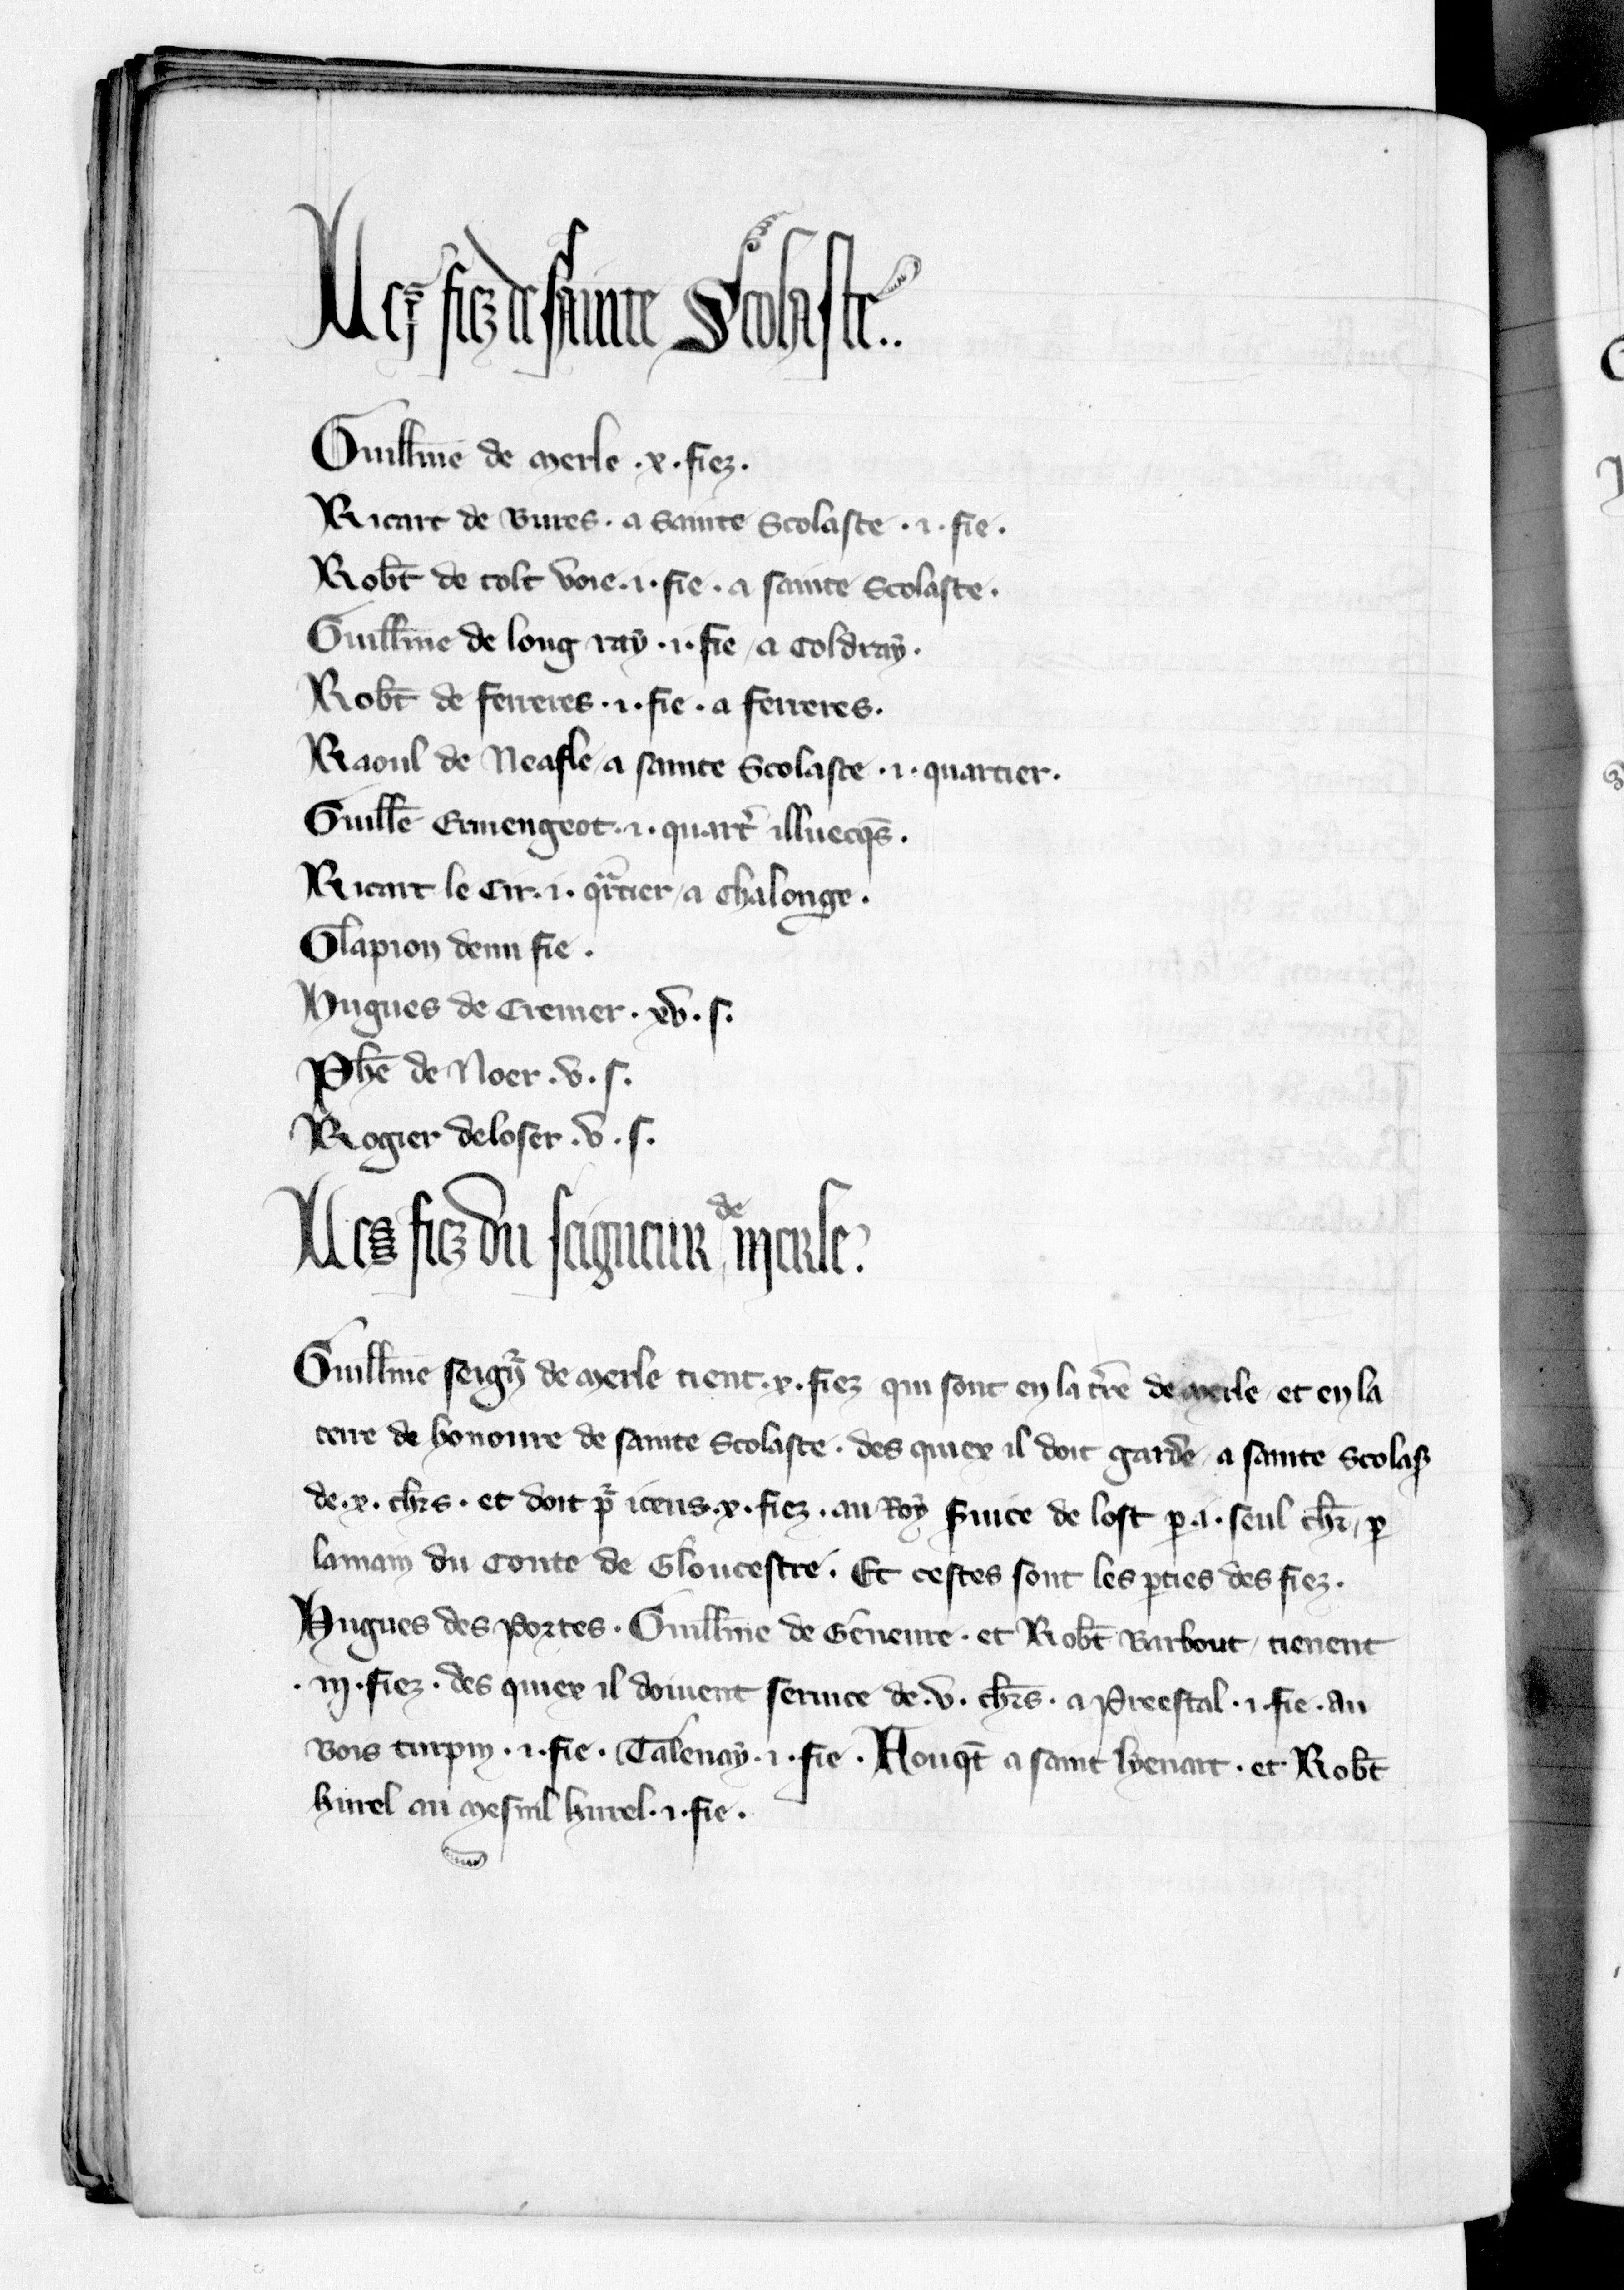 Les fiez de sainte Scolaste..
Guillme de merle .x. fiez.
Ricart de Bures. a sainte Scolaste .i. fie.
Robt de tolt voie .i. fie. a sainte Scolaste.
Guillme de long ray .i. fie / a Coldray.
Robt de ferreres .i. fie. a ferreres.
Raoul de Neafle / a sainte Scolaste .i. quartier.
Guille Ermengeot .i. quart illuecqs.
Ricart le Cir .i. qrtier / a Chalonge.
Glapion demi fie.
Hugues de Cremer. xv. s.
Phe de Noer .v. s.
Rogier deloser .v. s.
Les fiez du seigneur de merle.
Guillme seigr de merle tient .x. fiez qui sont en la tre de merle / et en la
terre de honoure de sainte Scolaste. des quiex il doit garde / a sainte Scolast
de .x. chrs. et doit pr iceus .x. fiez. au Roy seruice de lost p .i. seul chr / p
lamain du Conte de Gloucestre. Et cestes sont les pties des fiez.
Hugues des portes. Guillme de Geneure. et Robt Barbout / tienent
.iij. fiez. des quiex il doiuent seruice de .v. chrs. a Preestal .i. fie. au
Bois turpin .i. fie. Talenay .i. fie. Houqt a saint lyenart. et Robt
hurel au mesnil hurel .i. fie.